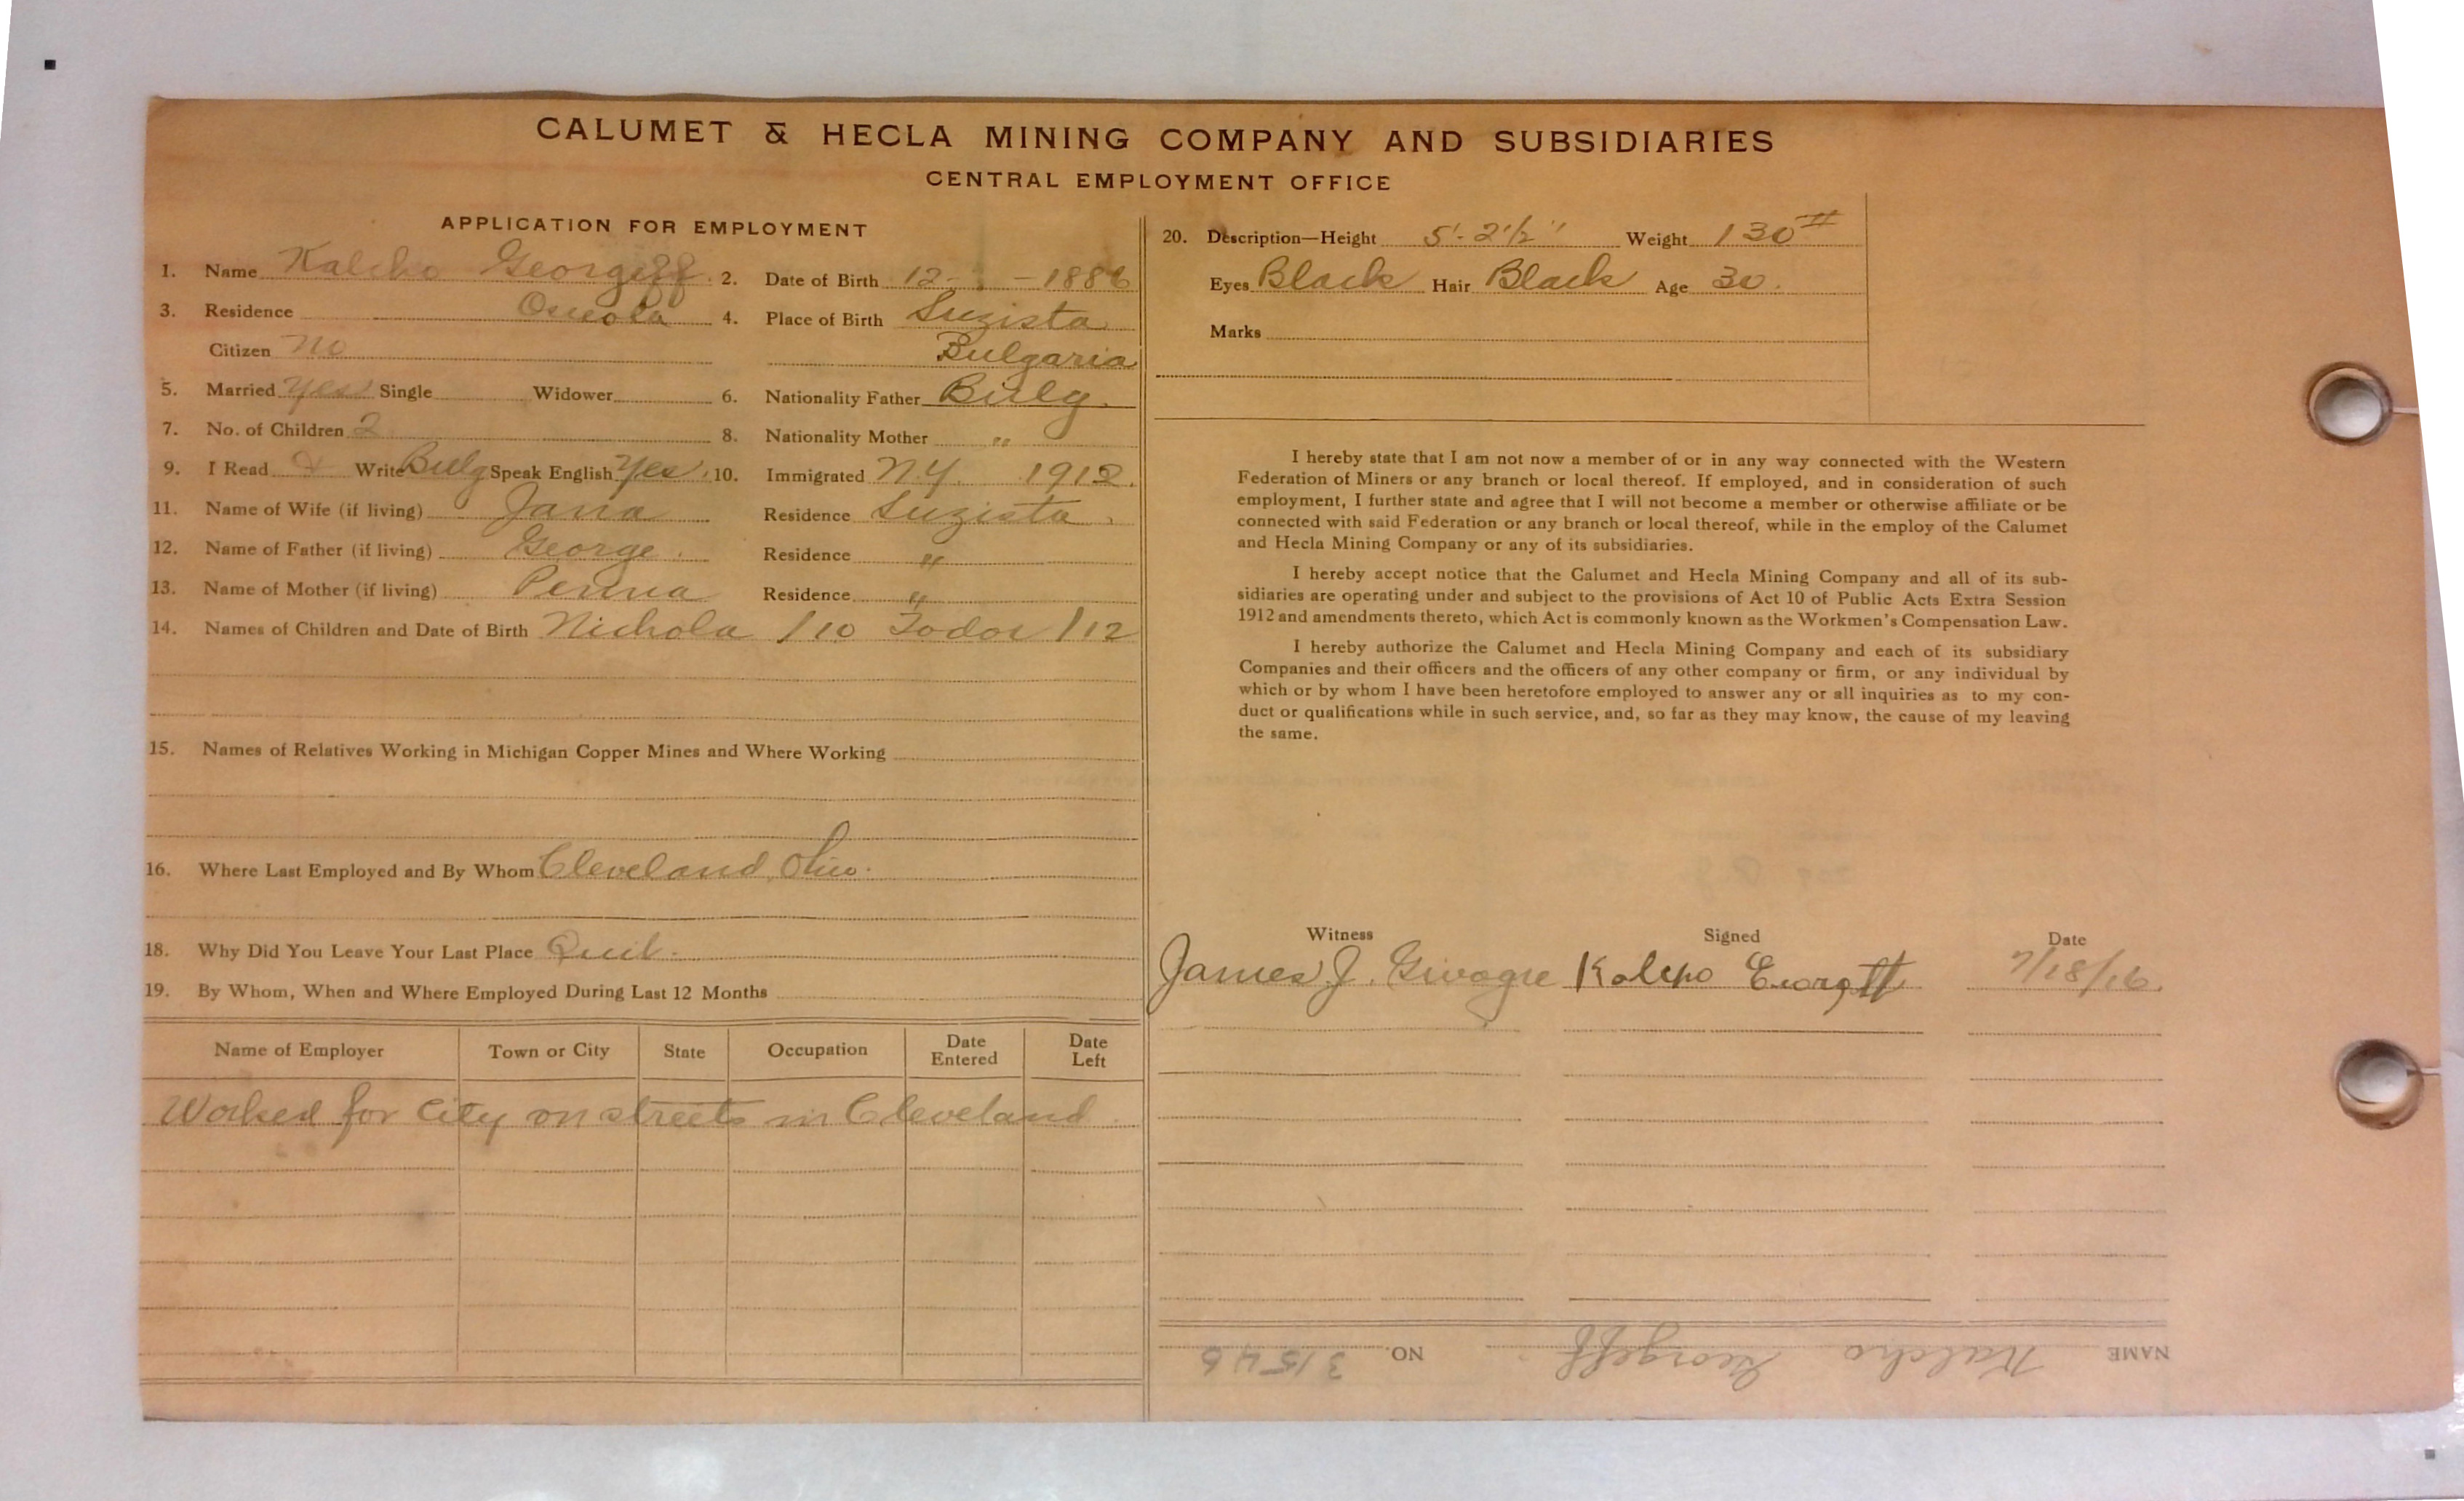 CALUMET & HECLA MINING COMPANY AND SUBSIDIARIES
CENTRAL EMPLOYMENT OFFICE
APPLICATION FOR EMPLOYMENT
1. Name Kalcho Georgeff 2. Date of Birth 12- -1886
3. Residence Osceola 4. Place of Birth Suzista
Citizen no Bulgaria
5. Married yes Single Widower 6. Nationality Father Bulg.
7. No. of Children 2 8. Nationality Mother "
9. I Read & Write Bulg Speak English Yes. 10. Immigrated N.Y. 1912.
11. Name of Wife (if living) Jana Residence Suzista.
12. Name of Father (if living) George. Residence "
13. Name of Mother (if living) Penna Residence "
14. Names of Children and Date of Birth Nichola /10 Todor /12
15. Names of Relatives Working in Michigan Copper Mines and Where Working
16. Where Last Employed and By Whom Cleveland, Ohio.
18. Why Did You Leave Your Last Place Quit.
19. By Whom, When and Where Employed During Last 12 Months
Name of Employer Town or City State Occupation Date Entered Date Left
Worked for City on streets in Cleveland
20. Description—Height 5'-2½" Weight 130#
Eyes Black Hair Black Age 30.
Marks
I hereby state that I am not now a member of or in any way connected with the Western
Federation of Miners or any branch or local thereof. If employed, and in consideration of such
employment, I further state and agree that I will not become a member or otherwise affiliate or be
connected with said Federation or any branch or local thereof, while in the employ of the Calumet
and Hecla Mining Company or any of its subsidiaries.
I hereby accept notice that the Calumet and Hecla Mining Company and all of its sub-
sidiaries are operating under and subject to the provisions of Act 10 of Public Acts Extra Session
1912 and amendments thereto, which Act is commonly known as the Workmen's Compensation Law.
I hereby authorize the Calumet and Hecla Mining Company and each of its subsidiary
Companies and their officers and the officers of any other company or firm, or any individual by
which or by whom I have been heretofore employed to answer any or all inquiries as to my con-
duct or qualifications while in such service, and, so far as they may know, the cause of my leaving
the same.
Witness Signed Date
James J. Kolcho 7/18/16.
NAME Kalcho Georgeff. NO. 31546